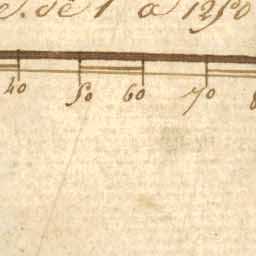 e. de 1 à 1250
40 50 60 70 8